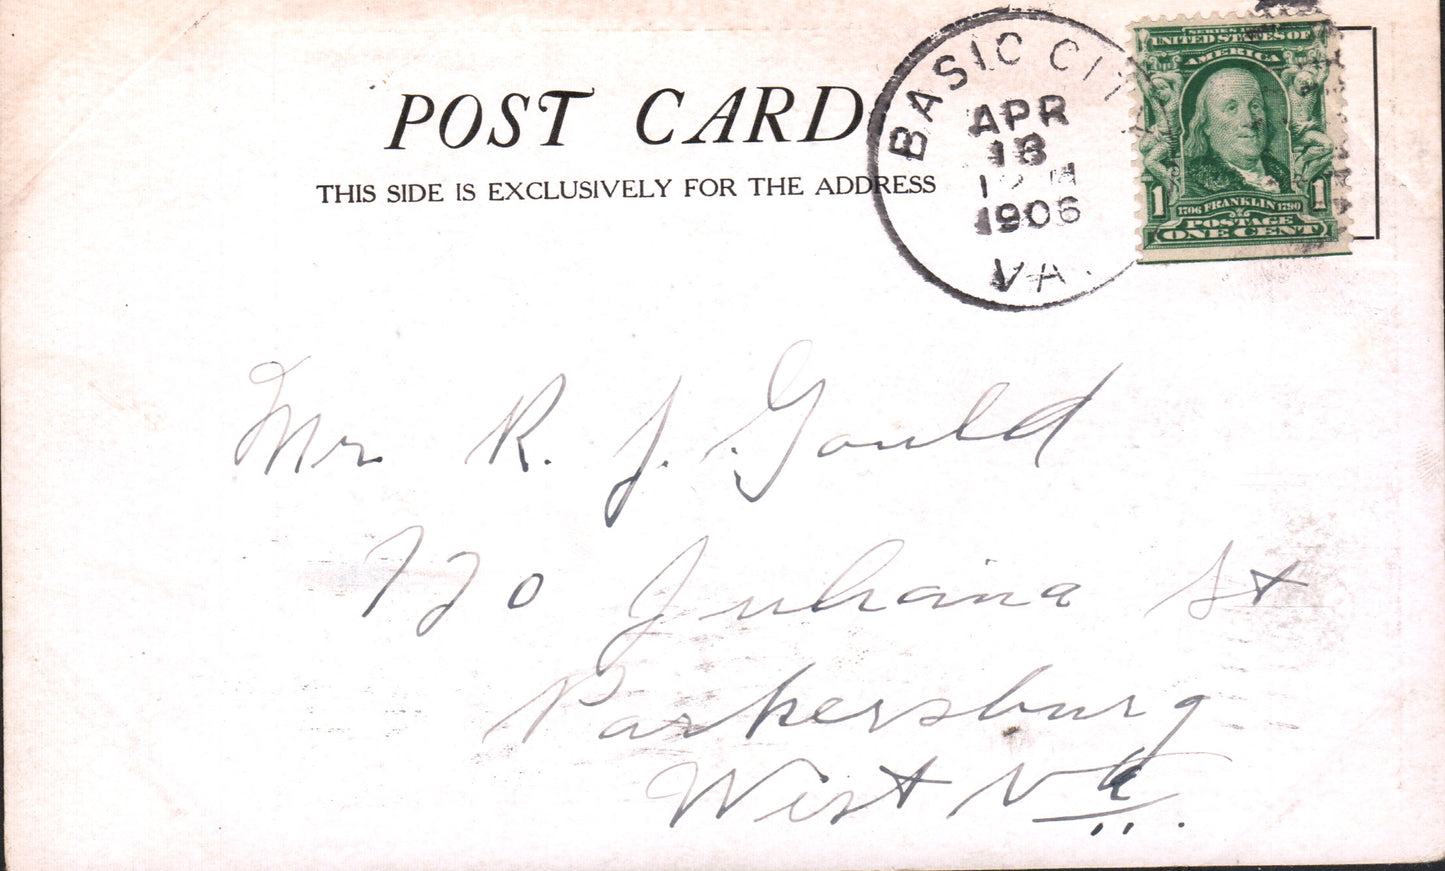 POST CARD
THIS SIDE IS EXCLUSIVELY FOR THE ADDRESS
BASIC CITY
APR
18
1906
VA.
UNITED STATES OF
AMERICA
1 1
1706 FRANKLIN 1790
POSTAGE
ONE CENT
Mr R. J. Gould
720 Juliana St
Parkersburg
West Va.